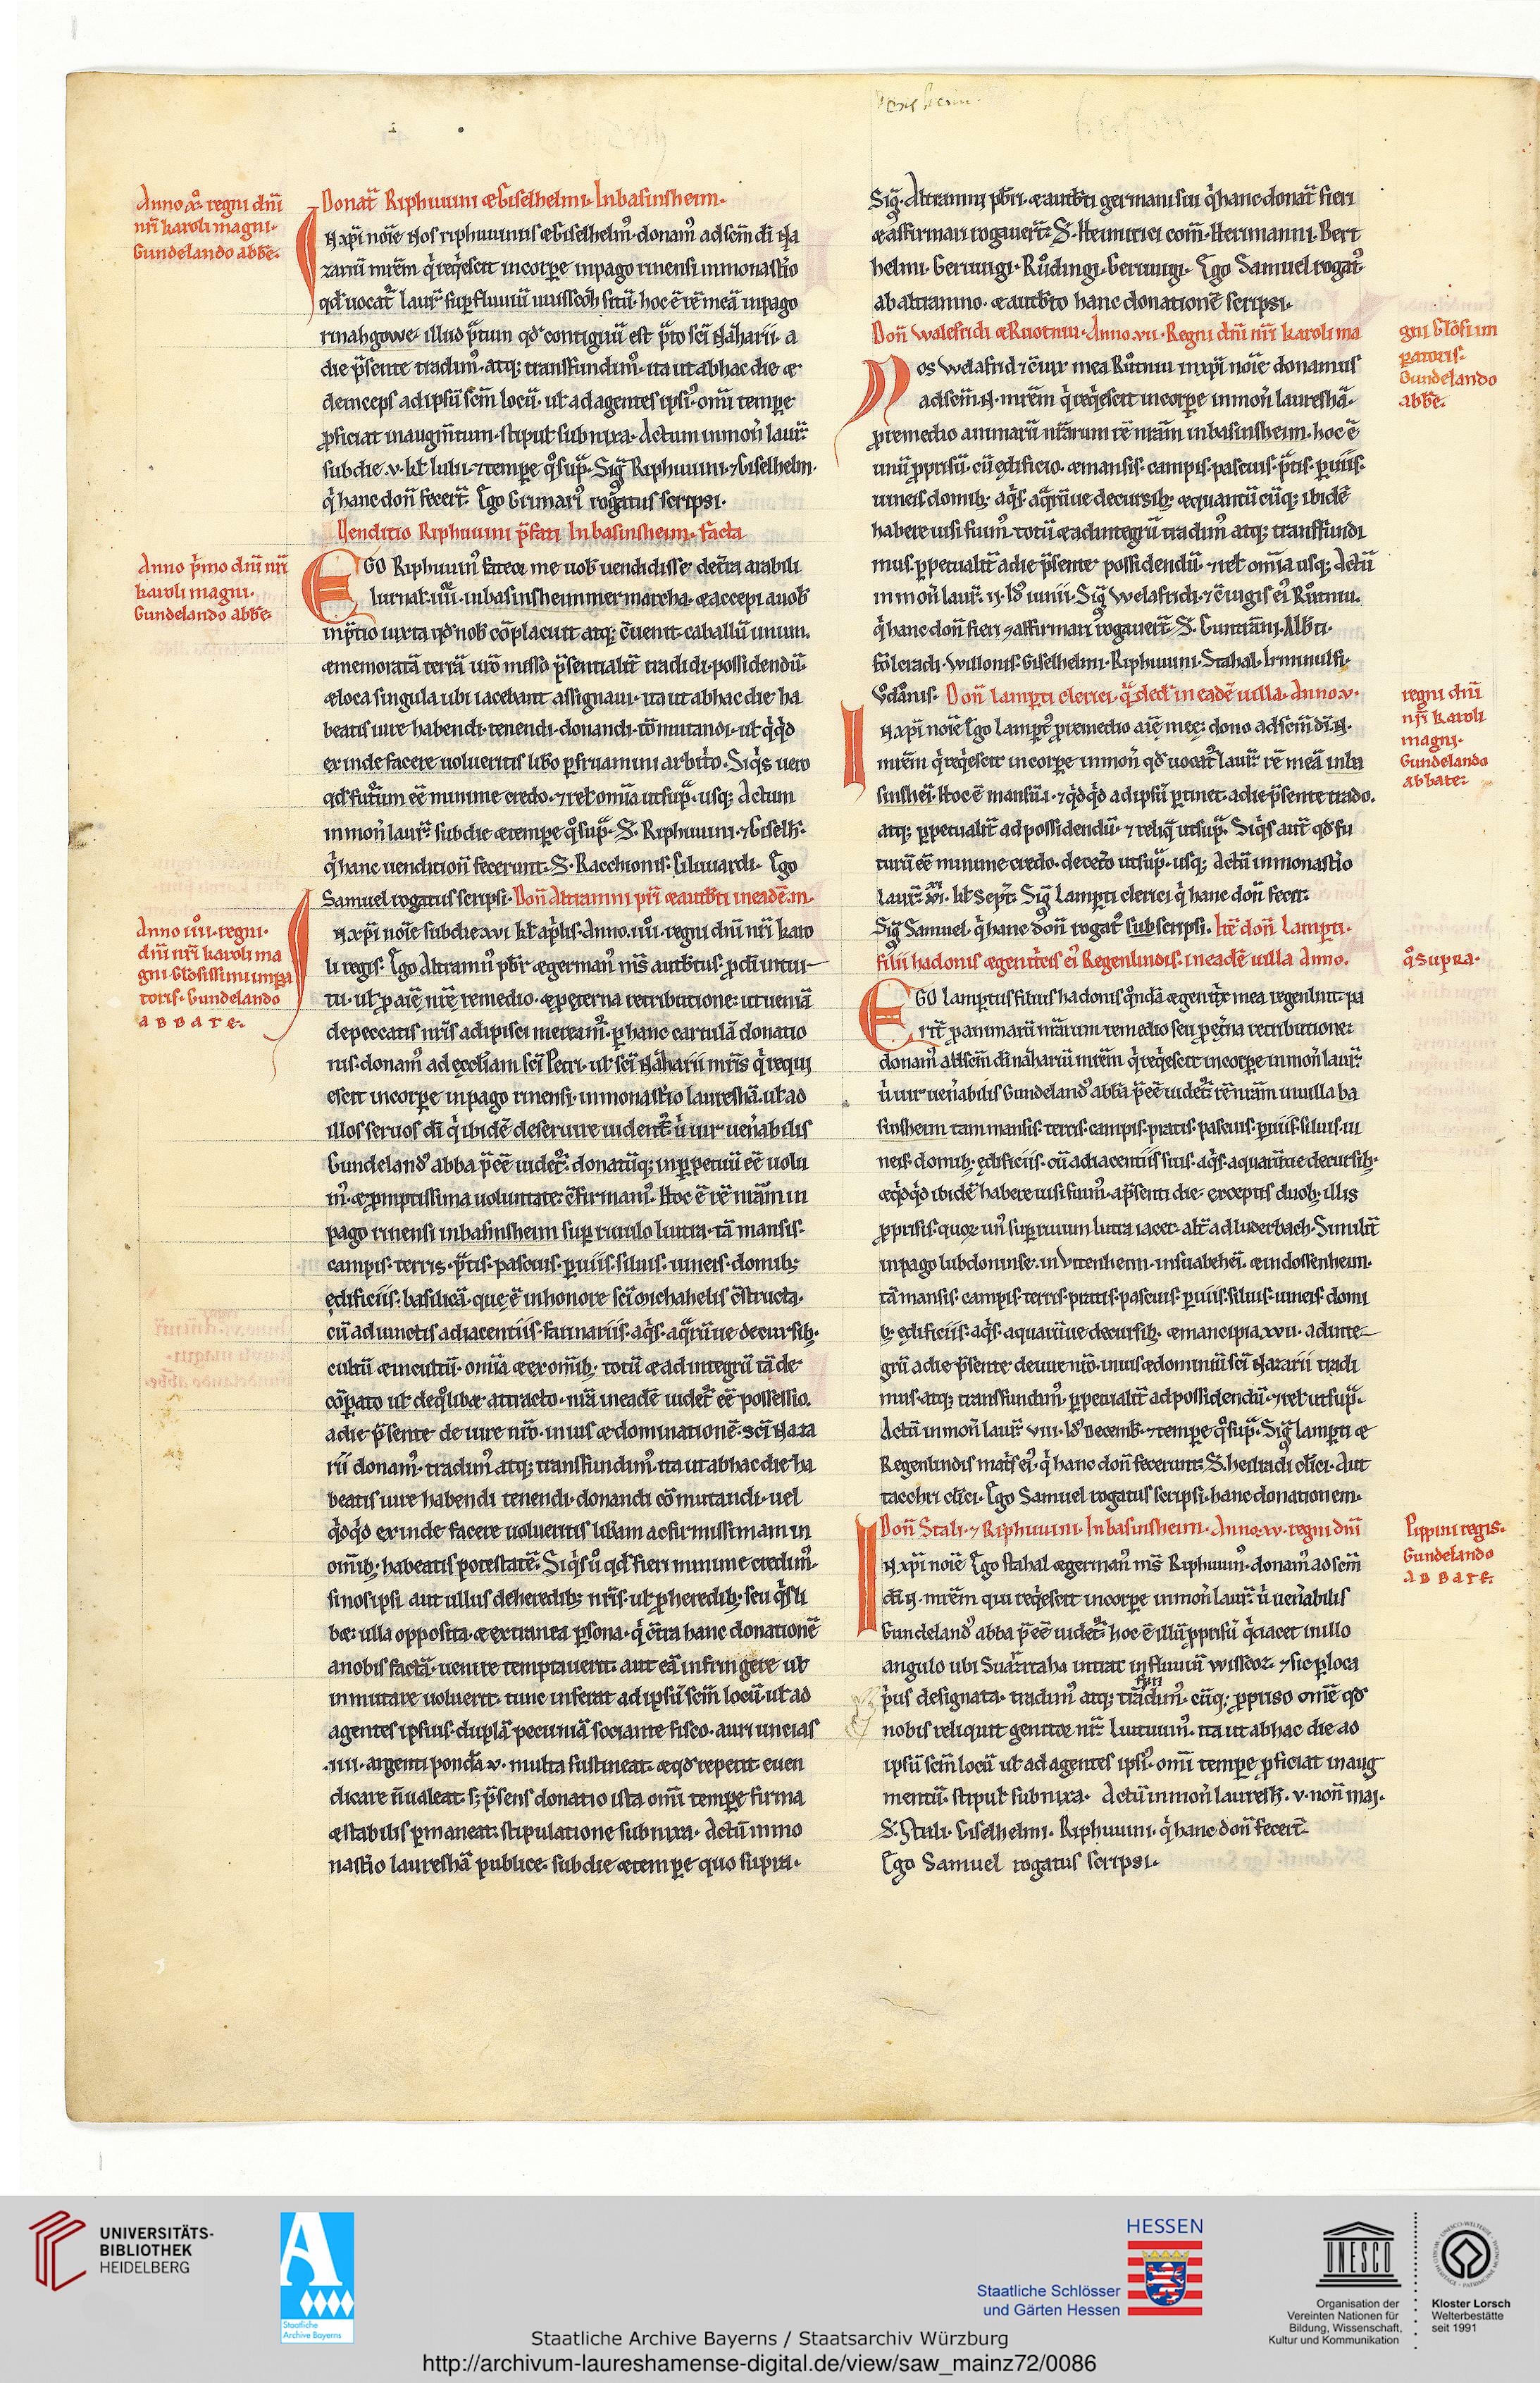 Donat̄ Riphuuini & Giselhelmi. Inbasinsheim.
Anno x̊. regni dn̄i
nr̄i karoli magni.
Gundelando abb̄e.
N xp̄i noīe Nos riphuuinus & Giselhelm᷒. donam᷒ ad sc̄m dī Na
zariū mr̄em q̇ req̇escit incorꝑe inpago rinensi inmonastīo
qd̄ uocat᷒ laur̄ suꝑ fluuiū uuisscoh̄ sitū. hoc ē rē meā inpago
rinahgowe. illud p̄tum qd̄ contiguū est p̄to sc̄i Naẑarii. a
die p̄sente tradim᷒. atq; transfundim᷒. ita ut abhac die &
deinceps ad ipsū sc̄m locū. ul̄ ad agentes ipsi᷒. omī temꝑe
ꝓficiat inaugm̄tum. stipul̄ subnixa. Actum inmoñ laur̄
subdie .v. kl̄ iulii. ⁊ temꝑe q̊ sup̄. Sig̃ Riphuuini. ⁊ Giselhelm.
q̇ hanc don̄ fecer̄t. Ego Grimari᷒ rogatus scripsi.
Uenditio Riphuuini p̄fati Inbasinsheim. facta
Anno ṗmo dn̄i nr̄i
karoli magni.
Gundelando abb̄e.
EGO Riphuuin᷒ fateor me uob̄ uendidisse de t̄ra arabili
Iurnal̄. iiii. inbasinsheimmer marcha. & accepi auob̄
inp̄tio iuxta qd̄ nob̄ cōplacuit atq; c̄uenit. caballū unum.
& memoratā terrā ur̄o misso p̄sentialit̄ tradidi. possidendū.
& loca singula ubi iacebant assignaui. ita ut abhac die ha
beatis iure habendi. tenendi. donandi. cōmutandi. ul̄ q̇q̇d
exinde facere uolueritis lib̄o ꝑfruamini arbit̄o. Siq̇s uero
qd̄ futūum eē minime credo. ⁊ rel̄ omīa utsup̄. usq; Actum
inmoñ laur̄ subdie & tempe q̊ sup̄. S. Riphuuini. ⁊ Giselh̄.
q̇ hanc uendition̄ fecerunt. S. Racchionis. Siluuardi. Ego
Samuel rogatus scripsi. Don̄ Altramni pr̄i & autb̄ti ineadē. m.
Anno iiii̊. regni.
dn̄i nr̄i karoli ma
gni Glōsissimi impa
toris. Gundelando
abbate.
N xp̄i noīe subdie .xvi kl̄ ap̄lis. Anno. iiii̊. regni dn̄i nr̄i karo
li regis. Ego Altramn᷒ pb̄r & german᷒ ms̄ autb̄tus. ꝓ dī intui
tu. ul̄ ꝓ aīe nr̄e remedio. & ꝓ eterna retributione: ut ueniā
depeccatis nr̄is adipisci meream᷒. ꝑ hanc cartulā donatio
nis. donam᷒ ad eccl̄iam sc̄i Petri. ul̄ sc̄i Naẑarii mr̄is q̇ requi
escit incorꝑe inpago rinensi. inmonast̄io laureshā. ul̄ ad
illos seruos dī q̇ ibidē deseruire uident᷒. u̇ uir uen̄abilis
Gundeland᷒ abba p̄eē uidet᷒. donatūq; inꝑpetuū eē uolu
m᷒. & ꝓmptissima uoluntate c̄firmam᷒. Hoc ē rē nr̄am in
pago rinensi inbasinsheim suꝑ riuulo lutra. tā mansis.
campis. terris. p̄tis. pascuis. ꝑuiis. siluis. uineis. domib;
edificiis. basilicā. que ē inhonore sc̄i michahelis c̄structa.
cū adiunctis adiacentiis. farinariis. aq̇s. aq̄rūue decursib;.
cultū & incultū. omīa & ex omīb;. totū & ad integrū tā de
cōꝑato ul̄ deq̊libæ attracto. nr̄a ineadē uidet᷒ eē possessio.
adie p̄sente de iure nr̄o. inius & dominationē sc̄i Naza
rii donam᷒. tradim᷒ atq; transfundim᷒. ita ut abhac die ha
beatis iure habendi tenendi. donandi cōmutandi. uel
q̇dq̇d exinde facere uolueritis lib̄am ac firmissimam in
omīb; habeatis potestatē. Siq̇s u̇ qd̄ fieri minime credim᷒.
si nos ipsi aut ullus de heredib; nr̄is. ul̄ ꝓ heredib; seu q̇sli
bæ ulla opposita. & extranea ꝑsona. q̇ c̄tra hanc donationē
anobis factā. uenire temptauerit. aut eā infringere ul̄
inmutare uoluerit. tunc inferat ad ipsū sc̄m locū. ul̄ ad
agentes ipsius. duplā pecuniā sociante fisco. auri uncias
.iiii. argenti pondā .v. multa sustineat. & qd̄ repetit euen
dicare n̄ ualeat. s; p̄sens donatio ista omī temꝑe firma
& stabilis ꝑmaneat. stipulatione subnixa. Actū inmo
nast̄io laureshā publice. subdie & temꝑe quo supra.
Sig̃. Altramni pb̄ri. & autb̄ti germani sui q̇ hanc donat̄ fieri
& affirmari rogauer̄t. S. Heimirici com̄. Herimanni. Bert
helmi. Geruuigi. Růdingi. Geruuigi. Ego Samuel rogat᷒
ab altramno. & autb̄to hanc donationē scripsi.
Don̄ Walefridi & Ruotniu. Anno .vii. Regni dn̄i nr̄i karoli ma
gni Glōsi im
ꝑatoris.
Gundelando
abb̄e.
Nos Welafrid ⁊ c̄iux mea Růtniu inxp̄i noīe donamus
ad sc̄m. N. mr̄em q̇ req̇escit incorꝑe inmoñ laureshā.
ꝓremedio animarū nr̄arum rē nr̄am inbasinsheim. hoc ē
unū ꝓprisū. cū edificio. & mansis. campis. pascuis. p̄tis. ꝑuiis.
uineis. domib; aq̇s. aq̄rūue decursib;. & quantūcūq; ibidē
habere uisi sum᷒. totū & ad integrū tradim᷒ atq; transfundi
mus. ꝑpetualit̄ adie p̄sente possidendū. ⁊ rel̄ omīa usq; Actū
inmoñ laur̄. ii. id᷒ iunii. Sig̃ Welafridi. ⁊ c̄iugis ei᷒ Růtniu.
q̇ hanc don̄ fieri ⁊ affirmari rogauer̄t. S. Guntrāni. Alb̄ti.
folcradi. Willonis. Giselhelmi. Riphuuini. Stahal. Irminulfi.
Don̄ lamꝑti clerici. q̄ ded̄ in eadē uilla. Anno .v.
regni dn̄i
nr̄i karoli
magni.
Gundelando
abbate.
N xp̄i noīe Ego lampt᷒ ꝓremedio aīe mee: dono ad sc̄m dī. N.
mr̄em q̇ req̇escit incorꝑe inmoñ qd̄ uocat᷒ laur̄ rē meā inba
sinshei. Hoc ē mansū .i. ⁊ q̇dq̇d ad ipsū ꝑtinet. adie p̄sente trado.
atq; ꝑpetualit̄ ad possidendū. ⁊ reliq̄ utsup̄. Siq̇s aut̄ qd̄ fu
turū eē minime credo. decet̄o utsup̄. usq; Actū inmonast̄io
laur̄. xvi. kl̄ Sept̄. Sig̃ Lamꝑti clerici q̇ hanc don̄ fecit.
Sig̃ Samuel. q̇ hanc don̄ rogat᷒ subscripsi. It̄e don̄ Lamꝑti.
filii hadonis & genit̄cis ei᷒ Regenlindis. ineadē uilla Anno.
q̊ supra.
EGO lamꝑtus filius hadonis q̊ndā & genit̄x mea regenlint. pa
rit̄ ꝓ animarū nr̄arum remedio seu ꝓ et̄na retributione:
donam᷒ ad sc̄m dī naẑariū mr̄em q̇ req̇escit incorꝑe inmoñ laur̄
u̇ uir uen̄abilis Gundeland᷒ abba p̄eē uidet᷒. rē nr̄am inuilla ba
sinsheim tam mansis. terris. campis. pratis. pascuis. ꝑuiis. siluis. ui
neis. domib;. edificiis. cū adiacentiis suis. aq̇s. aquarūue decursib;.
& q̇dq̇d ibidē habere uisi sum᷒. ap̄senti die. exceptis duob; illis
ꝓprisis. quoꝝ un᷒ suꝑ riuum lutra iacet. alt̄ ad luderbach. Similit̄
inpago lubdoninse. in Vitenheim. insuabehei. & indossenheim.
tā mansis. campis. terris. pratis. pascuis. ꝑuiis. siluis. uineis. domi
b;. edificiis. aq̇s. aquarūue decursib;. & mancipia .xvii. ad inte
grū adie p̄sente deiure nr̄o. inius & dominiū sc̄i Nazarii tradi
mus. atq; transfundim᷒. ꝑpetualit̄ ad possidendū. ⁊ rel̄ utsup̄.
Actū inmoñ laur̄. viii. id᷒ Decemb̄. ⁊ temꝑe q̊ sup̄. Sig̃ lamꝑti &
Regenlindis mat̄s ei᷒. q̇ hanc don̄ fecerunt. S. heilradi cl̄ici. Aut
tacchri cl̄ici. Ego Samuel rogatus scripsi. hanc donationem.
Don̄ Stali. ⁊ Riphuuini. Inbasinsheim. Anno .xv. regni dn̄i
Pippini regis.
Gundelando
abbate.
N xp̄i noīe Ego stahal & german᷒ ms̄ Riphuuin᷒. donam᷒ ad sc̄m
dī. N. mr̄em qui req̇escit incorꝑe inmoñ laur̄. u̇ uen̄abilis
Gundeland᷒ abba p̄eē uidet᷒. hoc ē illū ꝓprisū q̇ iacet inillo
angulo ubi Suarzaha intrat influuiū wisscoz. ⁊ sic ꝑ loca
ṗus designata. tradim᷒ atq; trādim᷒. cūq; ꝓpriso omē qd̄
nobis reliquit genitor nr̄. Liutuuin᷒. ita ut abhac die ad
ipsū sc̄m locū ul̄ ad agentes ipsi᷒. omī temꝑe ꝓficiat inaug
mentū. stipul̄ subnixa. Actū inmoñ lauresh̄. v. non̄ mai.
S. Stali. Giselhelmi. Riphuuini. q̇ hanc don̄ fecer̄t
Ego Samuel rogatus scripsi.
UNIVERSITÄTS-
BIBLIOTHEK
HEIDELBERG
Staatliche
Archive Bayerns
HESSEN
Staatliche Schlösser
und Gärten Hessen
UNESCO
Organisation der
Vereinten Nationen für
Bildung, Wissenschaft,
Kultur und Kommunikation
Kloster Lorsch
Welterbestätte
seit 1991
Staatliche Archive Bayerns / Staatsarchiv Würzburg
http://archivum-laureshamense-digital.de/view/saw_mainz72/0086